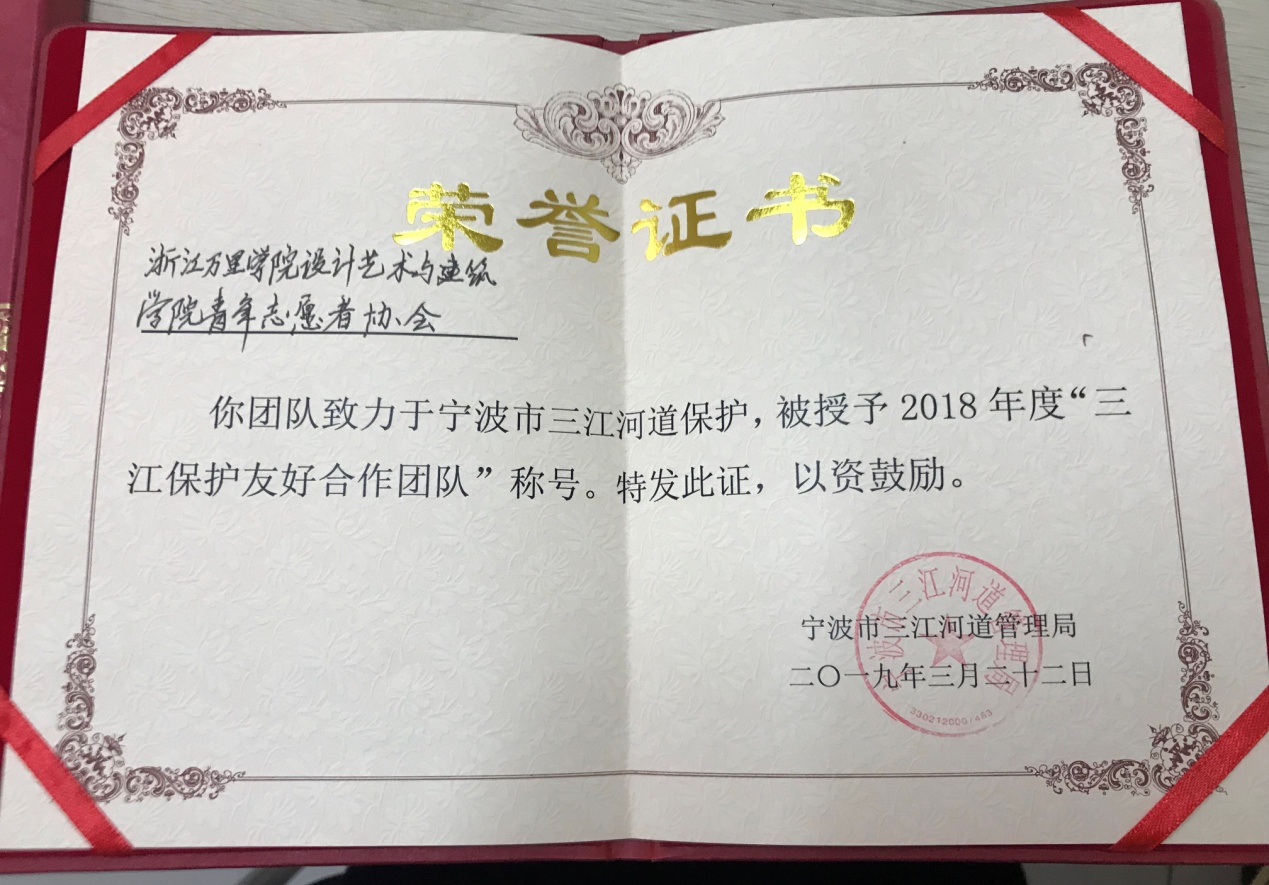 荣誉证书
浙江万里学院设计艺术与建筑
学院青年志愿者协会
你团队致力于宁波市三江河道保护，被授予 2018 年度“三
江保护友好合作团队”称号。特发此证，以资鼓励。
宁波市三江河道管理局
二〇一九年三月二十二日
宁波市三江河道管理局